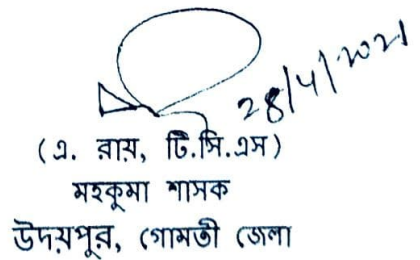 28/4/2021
(এ. রায়, টি.সি.এস)
মহকুমা শাসক
উদয়পুর, গোমতী জেলা